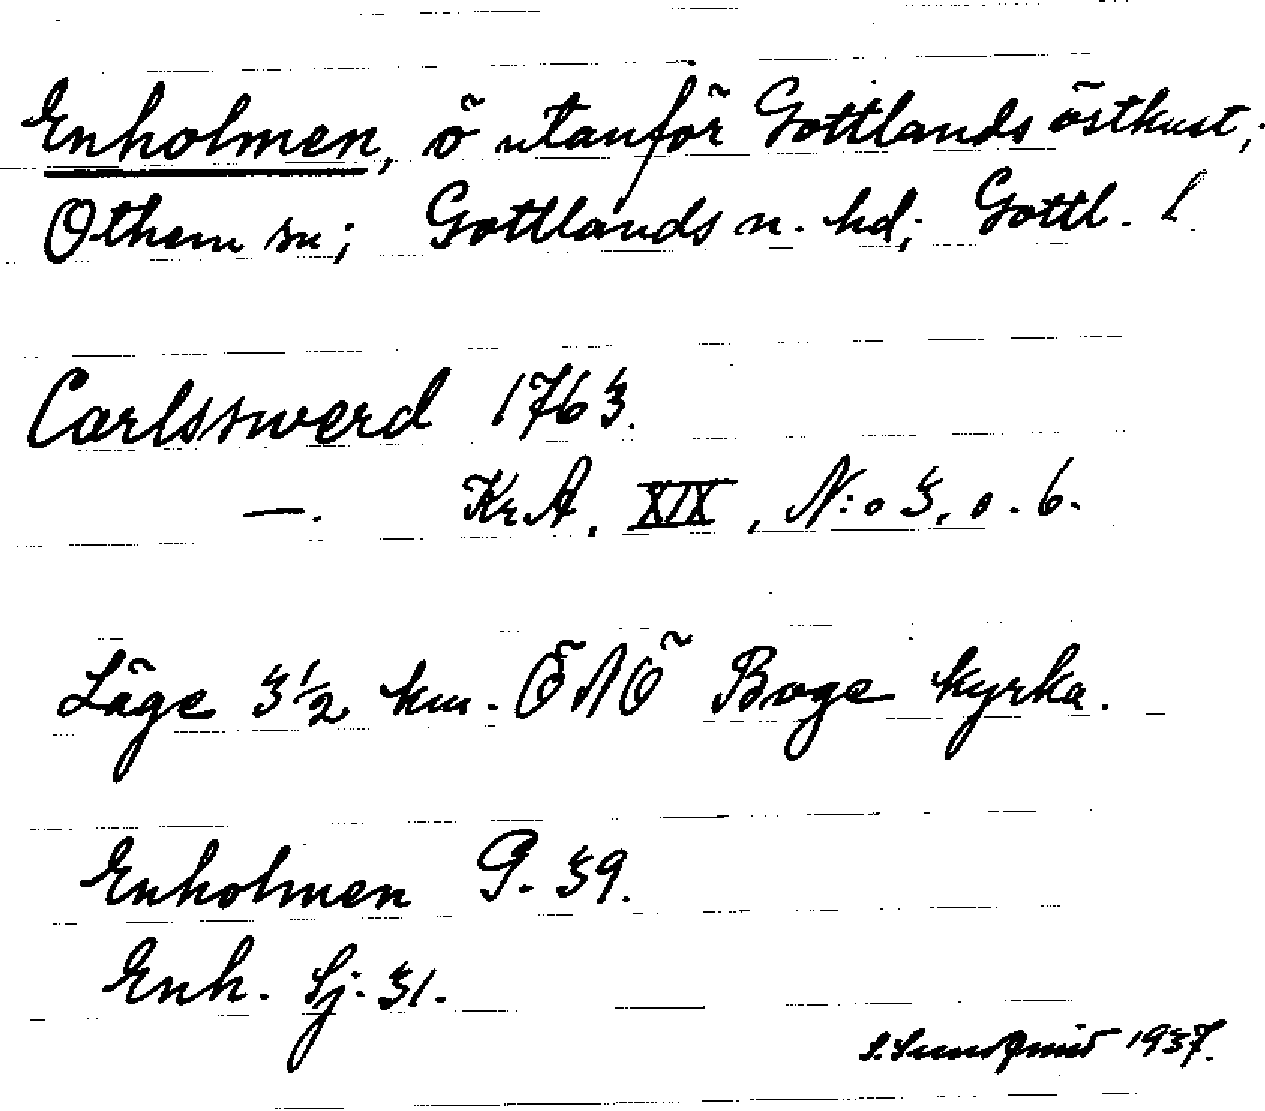 Enholmen, ö utanför Gottlands östkust;
Othem sn; Gottlands n. hd; Gottl. l.
Carlsswerd 1763.
—. Kr.A. XIX, N:o 3, o. 6.
Läge 3 1/2 km. ÖNÖ Boge kyrka.
Enholmen G. 39.
Enh. Sj. 31.
S. Sundqvist 1937.